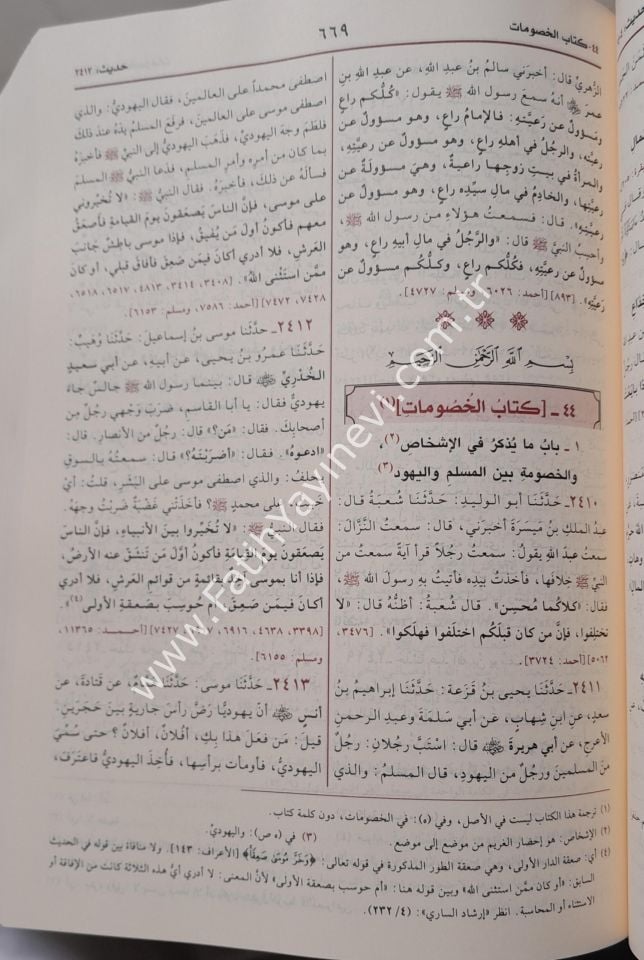 ٤٤- كتاب الخصومات
٦٦٩
حديث: ٢٤١٢
الزُّهريِّ قال: أخبرَني سالمُ بنُ عبدِ اللهِ، عن عبدِ اللهِ بنِ
عمرَ ﷺ أنه سمعَ رسولَ الله ﷺ يقول: «كُلُّكم راعٍ
ومسؤولٌ عن رَعيَّتِهِ: فالإمامُ راعٍ، وهو مسؤولٌ عن
رعيَّتِه، والرجُلُ في أهلِهِ راعٍ، وهو مسؤولٌ عن رعيَّتِهِ،
والمرأةُ في بيتِ زوجِها راعيةٌ، وهيَ مسؤولةٌ عن
رعيَّتِها، والخادِمُ في مالِ سيِّدِه راعٍ، وهو مسؤولٌ عن
رعيَّتِهِ». قال: فسمعتُ هؤلاءِ من رسولِ الله ﷺ،
وأحسِبُ النبيَّ ﷺ قال: «والرَّجُلُ في مالِ أبيهِ راعٍ، وهو
مسؤولٌ عن رعيَّتِهِ، فكُلُّكم راعٍ، وكلُّكم مسؤولٌ عن
رَعيَّتِهِ». [٨٩٣] [أحمد: ٦٠٢٦، ومسلم: ٤٧٢٧].
بِسْمِ اللَّهِ الرَّحْمَنِ الرَّحِيمِ
٤٤ - [كتابُ الخُصُوماتِ](١)
١ - بابُ ما يُذكَرُ في الإشخاصِ(٢)،
والخصومةِ بينَ المسلمِ واليهودِ(٣)
٢٤١٠- حدَّثنَا أبو الوليدِ: حدَّثنَا شُعبةُ قال:
عبدُ الملكِ بنُ مَيْسَرةَ أخبرَني، قال: سمعتُ النَّزَّالَ:
سمعتُ عبدَ اللهِ يقولُ: سمعتُ رجُلاً قرأ آيةً سمعتُ منَ
النبيِّ ﷺ خِلافَها، فأخذتُ بيَدِه فأتيتُ به رسولَ الله ﷺ،
فقال: «كِلاكُما مُحسِنٌ». قال شُعبةُ: أظنُّهُ قال: «لا
تختلِفوا، فإنَّ من كان قبلَكم اختلَفوا فهلَكوا». [٣٤٧٦،
٥٠٦٢] [أحمد: ٣٧٢٤].
٢٤١١- حدَّثنَا يحيى بنُ قَزَعةَ: حدَّثنَا إبراهيمُ بنُ
سعدٍ، عن ابنِ شهابٍ، عن أبي سَلَمةَ وعبدِ الرحمنِ
الأعرجِ، عن أبي هريرةَ ﷺ قال: استَبَّ رجُلانِ: رجُلٌ
منَ المسلمينَ ورجُلٌ من اليهودِ، قال المسلمُ: والَّذي
اصطفى محمداً على العالمينَ، فقال اليهوديُّ: والذي
اصطفى موسى على العالمينَ، فرفَعَ المسلمُ يدَهُ عندَ ذلكَ
فلطَمَ وجهَ اليهوديِّ، فذهَبَ اليهوديُّ إلى النبيِّ ﷺ فأخبرَهُ
بما كان من أمرِهِ وأمرِ المسلمِ، فدَعا النبيُّ ﷺ المسلمَ
فسألَهُ عن ذلكَ، فأخبرَهُ. فقال النبيُّ ﷺ: «لا تُخيِّروني
على موسى، فإنَّ الناسَ يَصعَقونَ يومَ القيامةِ فأصعَقُ
معهم فأكونُ أولَ مَن يُفيقُ، فإذا موسى باطِشٌ جانبَ
العرشِ، فلا أدري أكانَ فيمَن صَعِقَ فأفاقَ قبلي، أو كانَ
ممَّن استَثْنى اللهُ». [٣٤٠٨، ٣٤١٤، ٤٨١٣، ٦٥١٧، ٦٥١٨،
٧٤٢٨، ٧٤٧٢] [أحمد: ٧٥٨٦، ومسلم: ٦١٥٣].
٢٤١٢- حدَّثنَا موسى بنُ إسماعيلَ: حدَّثنَا وُهَيبٌ:
حدَّثنَا عَمرُو بنُ يحيى، عن أبيهِ، عن أبي سعيدٍ
الخُدْريِّ ﷺ قال: بينما رسولُ اللهِ ﷺ جالسٌ جاءَ
يهوديٌّ فقال: يا أبا القاسمِ، ضرَبَ وَجْهي رجُلٌ مِن
أصحابِكَ. فقال: «مَن؟» قال: رجُلٌ من الأنصارِ. قال:
«ادعوهُ». فقال: «أضرَبْتَهُ؟» قال: سمعتُهُ بالسوقِ
يحلِفُ: والذي اصطفى موسى على البَشَرِ، قلتُ: أيْ
خبيثُ، على محمدٍ ﷺ؟ فأخذَتْني غَضْبةٌ ضرَبتُ وجهَهُ.
فقال النبيُّ ﷺ: «لا تُخيِّروا بينَ الأنبياءِ، فإنَّ الناسَ
يَصعَقونَ يومَ القيامةِ فأكونُ أوَّلَ مَن تَنشَقُّ عنه الأرضُ،
فإذا أنا بموسى آخِذٌ بقائمةٍ من قوائمِ العرشِ، فلا أدري
أكانَ فيمَن صَعِقَ، أم حُوسِبَ بصعقةِ الأولى»(٤).
[٣٣٩٨، ٤٦٣٨، ٦٩١٦، ٦٩١٧، ٧٤٢٧] [أحمد: ١١٣٦٥،
ومسلم: ٦١٥٥].
٢٤١٣- حدَّثنَا موسى: حدَّثنَا همَّامٌ، عن قَتادةَ، عن
أنسٍ ﷺ أن يهوديًّا رَضَّ رأسَ جاريةٍ بينَ حَجَرَينِ،
قيلَ: مَن فعَلَ هذا بِكِ، أفُلانٌ، أفُلانٌ؟ حتى سُمِّيَ
اليهوديُّ، فأومَأَت برأسِها، فأُخِذَ اليهوديُّ فاعترفَ،
(١) ترجمة هذا الكتاب ليست في الأصل، وفي (ه): في الخصومات، دون كلمة كتاب.
(٢) الإشخاص: هو إحضار الغريم من موضع إلى موضع. (٣) في (ه ص): واليهوديِّ.
(٤) أي: صعقة الدار الأولى، وهي صعقة الطور المذكورة في قوله تعالى: ﴿وَخَرَّ مُوسَى صَعِقًا﴾ [الأعراف: ١٤٣]. ولا منافاة بين قوله في الحديث
السابق: «أو كان ممّن استثنى الله» وبين قوله هنا: «أم حوسب بصعقة الأولى» لأن المعنى: لا أدري أيُّ هذه الثلاثة كانت من الإفاقة أو
الاستثناء أو المحاسبة. انظر «إرشاد الساري»: (٤/ ٢٣٢).
www.FatihYayinevi.com.tr